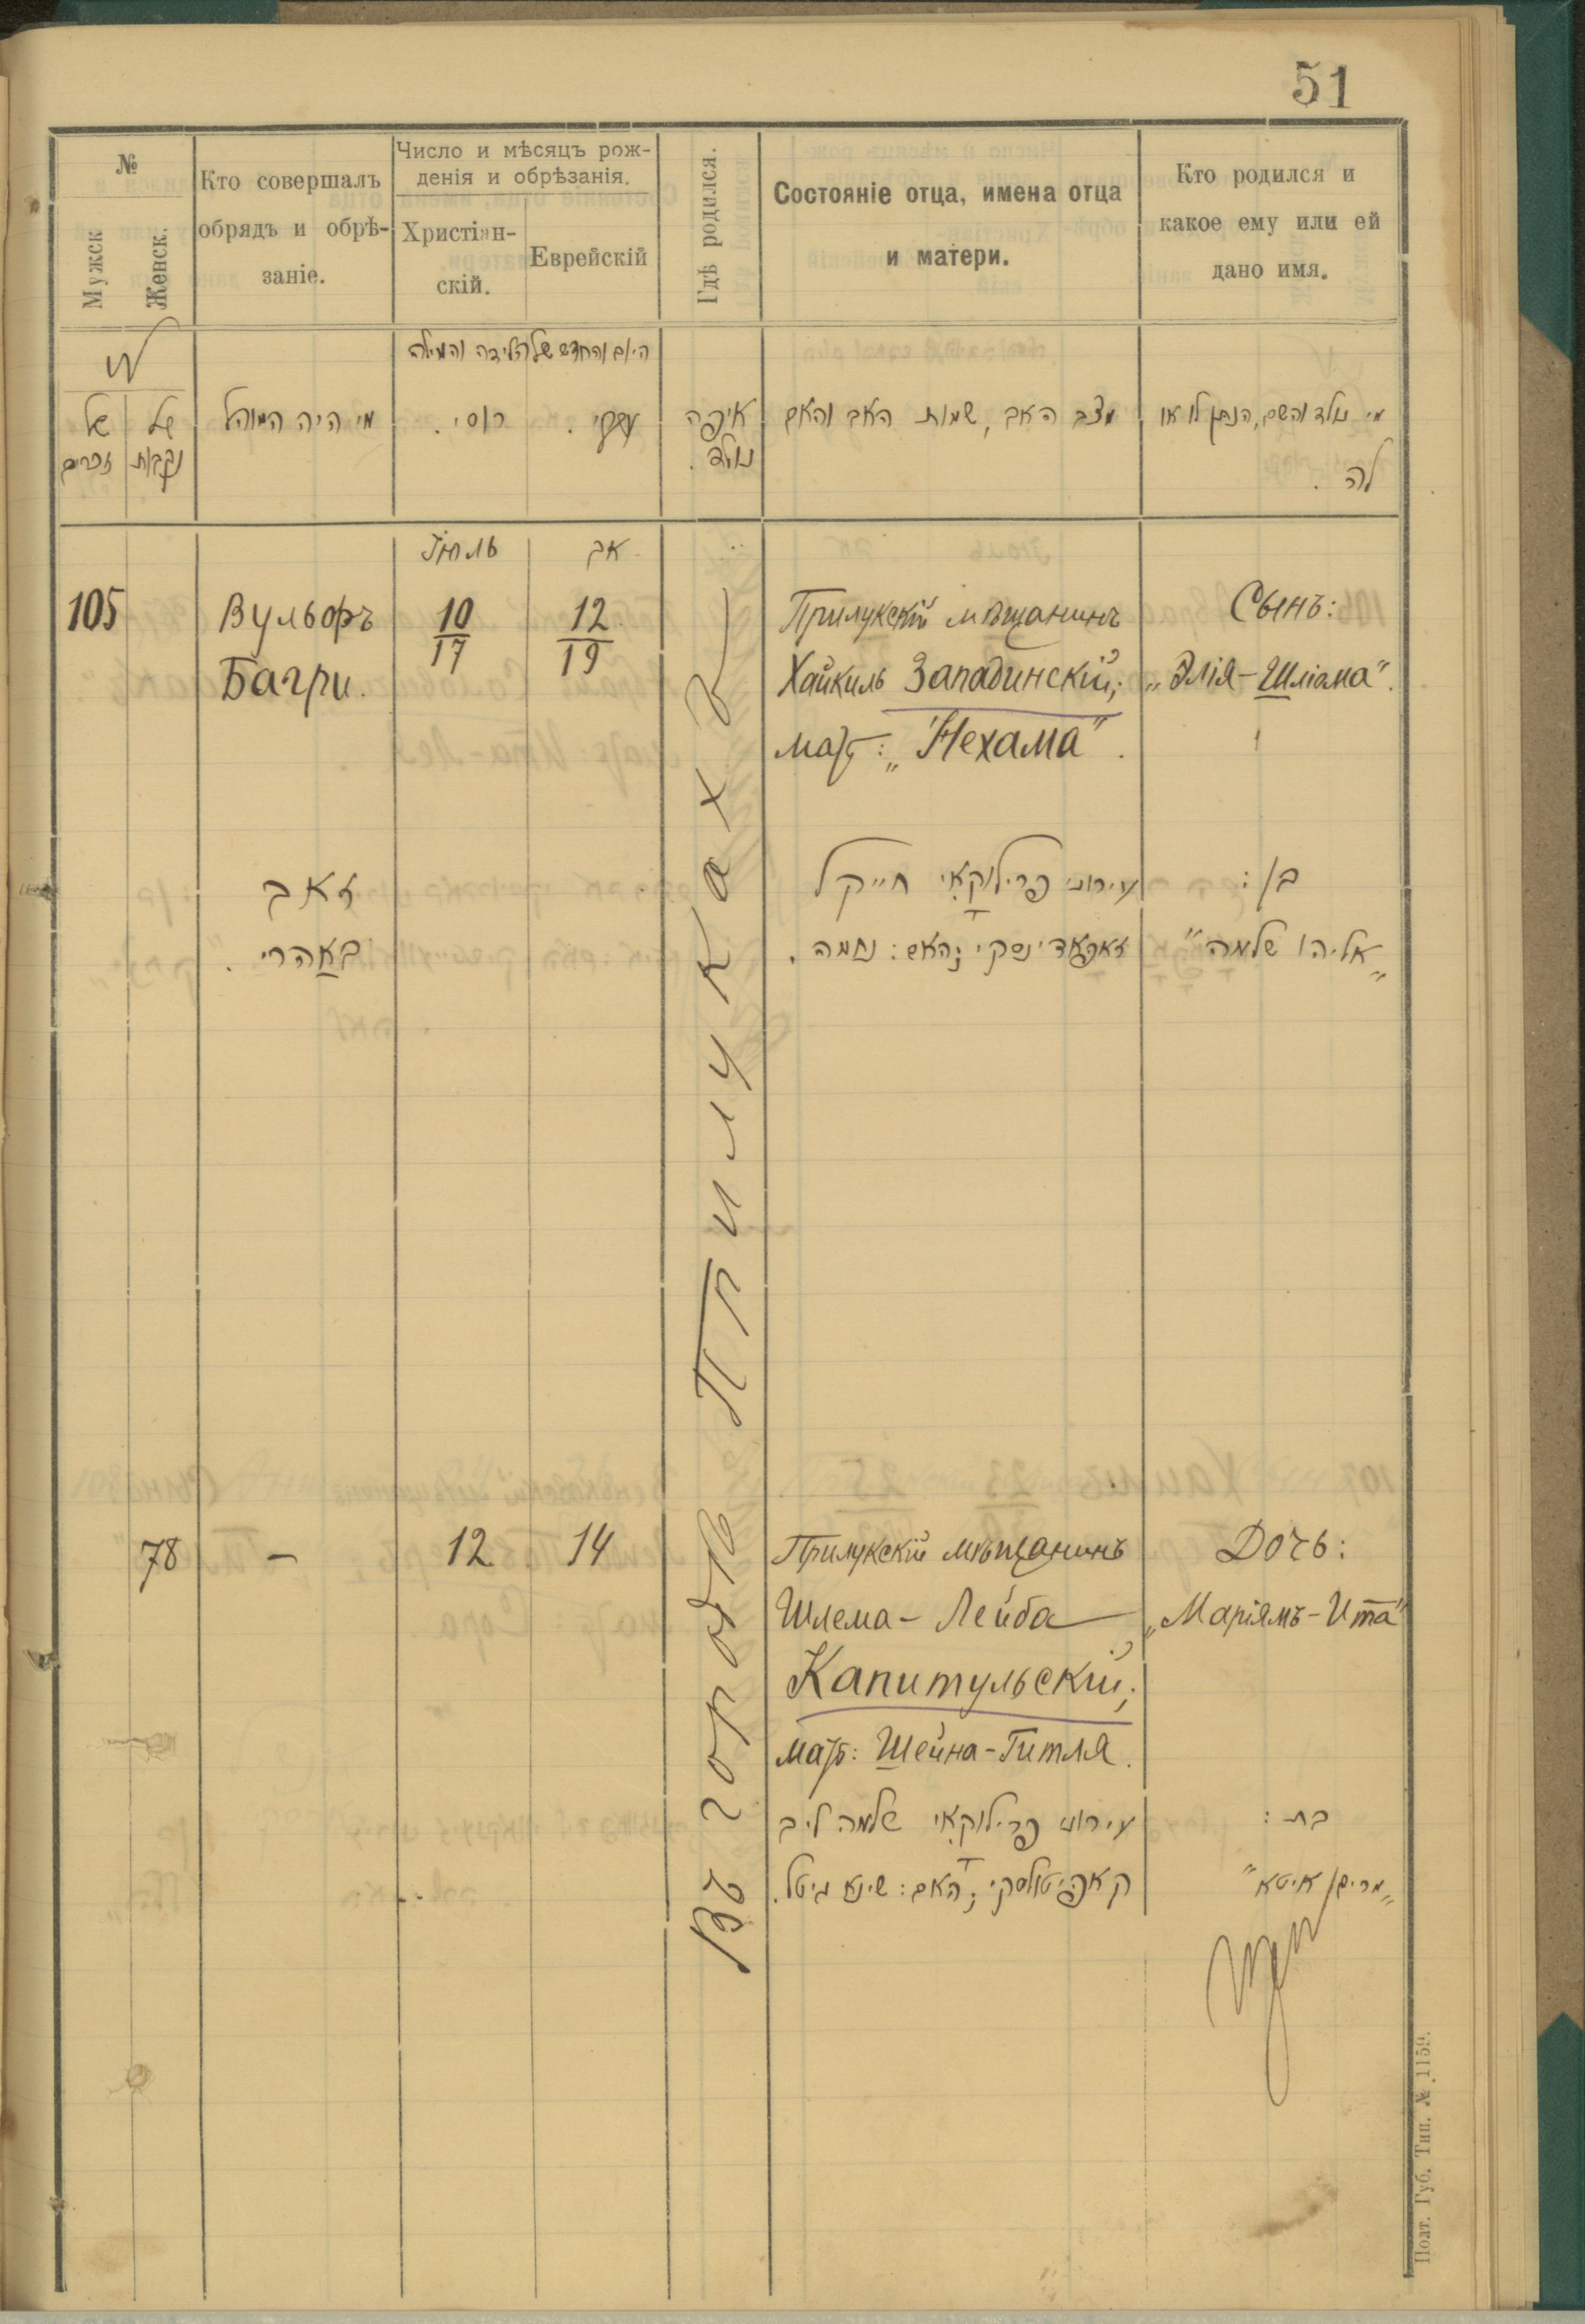 51
№
Мужск
Женск.
Кто совершалъ
обрядъ и обрѣ-
заніе.
Число и мѣсяцъ рож-
денія и обрѣзанія.
Христіан-
скій.
Еврейскій
Гдѣ родился.
Состояніе отца, имена отца
и матери.
Кто родился и
какое ему или ей
дано имя.
היום והחדש של הלידה והמילה
של זכרים
של נקבות
מי היה המוהל
רוסי.
עברי.
איפה
נולד.
מצב האב, שמות האב והאם
מי נולד והשם, הנתן לו או
לה.
Іюль
אב
105
Вульфъ
Багри.
10
17
12
19
Прилукскій мѣщанинъ
Хайкиль Западинскій;
мать: „Нехама".
Сынъ:
„Элія-Шліома".
זאב
באהרי.
עירוני פרילוקאי חייקל
זאפאדינסקי; האם: נחמה.
בן:
„אליהו שלמה"
Въ городѣ Прилукахъ
78
-
12
14
Прилукскій мѣщанинъ
Шлема-Лейба
Капитульскій;
мать: Шейна-Гитля.
Дочь:
„Маріямъ-Ита"
עירוני פרילוקאי שלמה ליב
קאפיטולסקי; האם: שינא גיטל.
בת:
„מרים איטא"
Полт. Губ. Тип. № 1159.